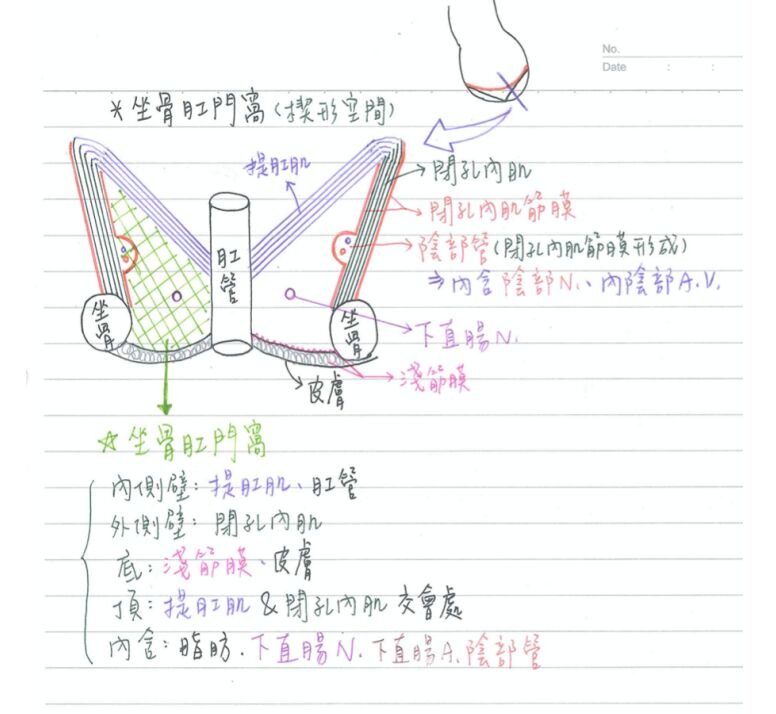 No.
Date : :
*坐骨肛門窩(楔形空間)
提肛肌
閉孔內肌
閉孔內肌筋膜
陰部管(閉孔內肌筋膜形成)
⇒內含陰部N.、內陰部A.V.
肛管
坐骨
坐骨
下直腸N.
淺筋膜
皮膚
☆坐骨肛門窩
內側壁:提肛肌、肛管
外側壁:閉孔內肌
底:淺筋膜、皮膚
頂:提肛肌&閉孔內肌交會處
內含:脂肪.下直腸N.下直腸A.陰部管